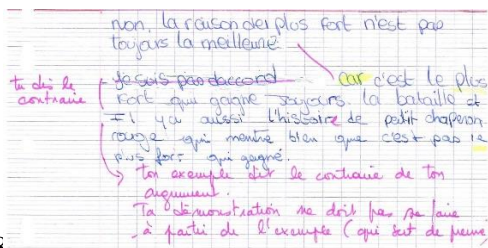 non, la raison des plus fort n'est pas
toujours la meilleure
tu dis le
contraire
je suis pas daccord car c'est le plus
fort qui gagne toujours. la bataille et
Il y a aussi l'histoire de petit chaperon
rouge qui montre bien que c'est pas le
plus fort qui gagné.
ton exemple dit le contraire de ton
argument.
Ta démonstration ne doit pas se faire
à partir de l'exemple (qui sert de preuve)